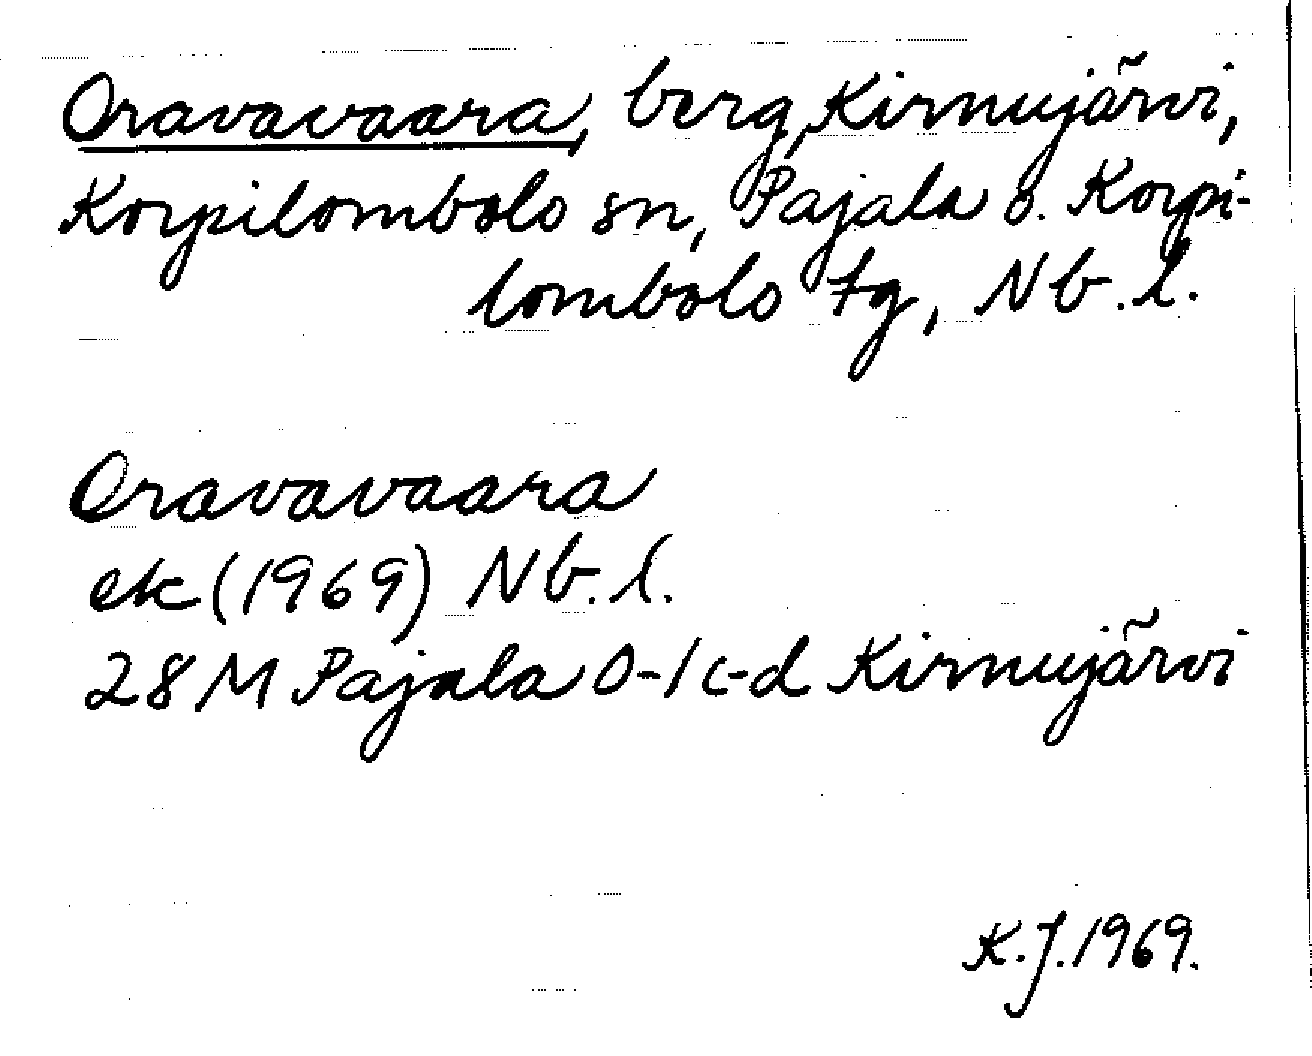 Oravavaara, berg, Kirnujärvi,
Korpilombolo sn, Pajala o. Korpi-
lombolo tg, Nb. l.
Oravavaara
ek (1969) Nb. l.
28 M Pajala 0-1 c-d Kirnujärvi
K.J. 1969.